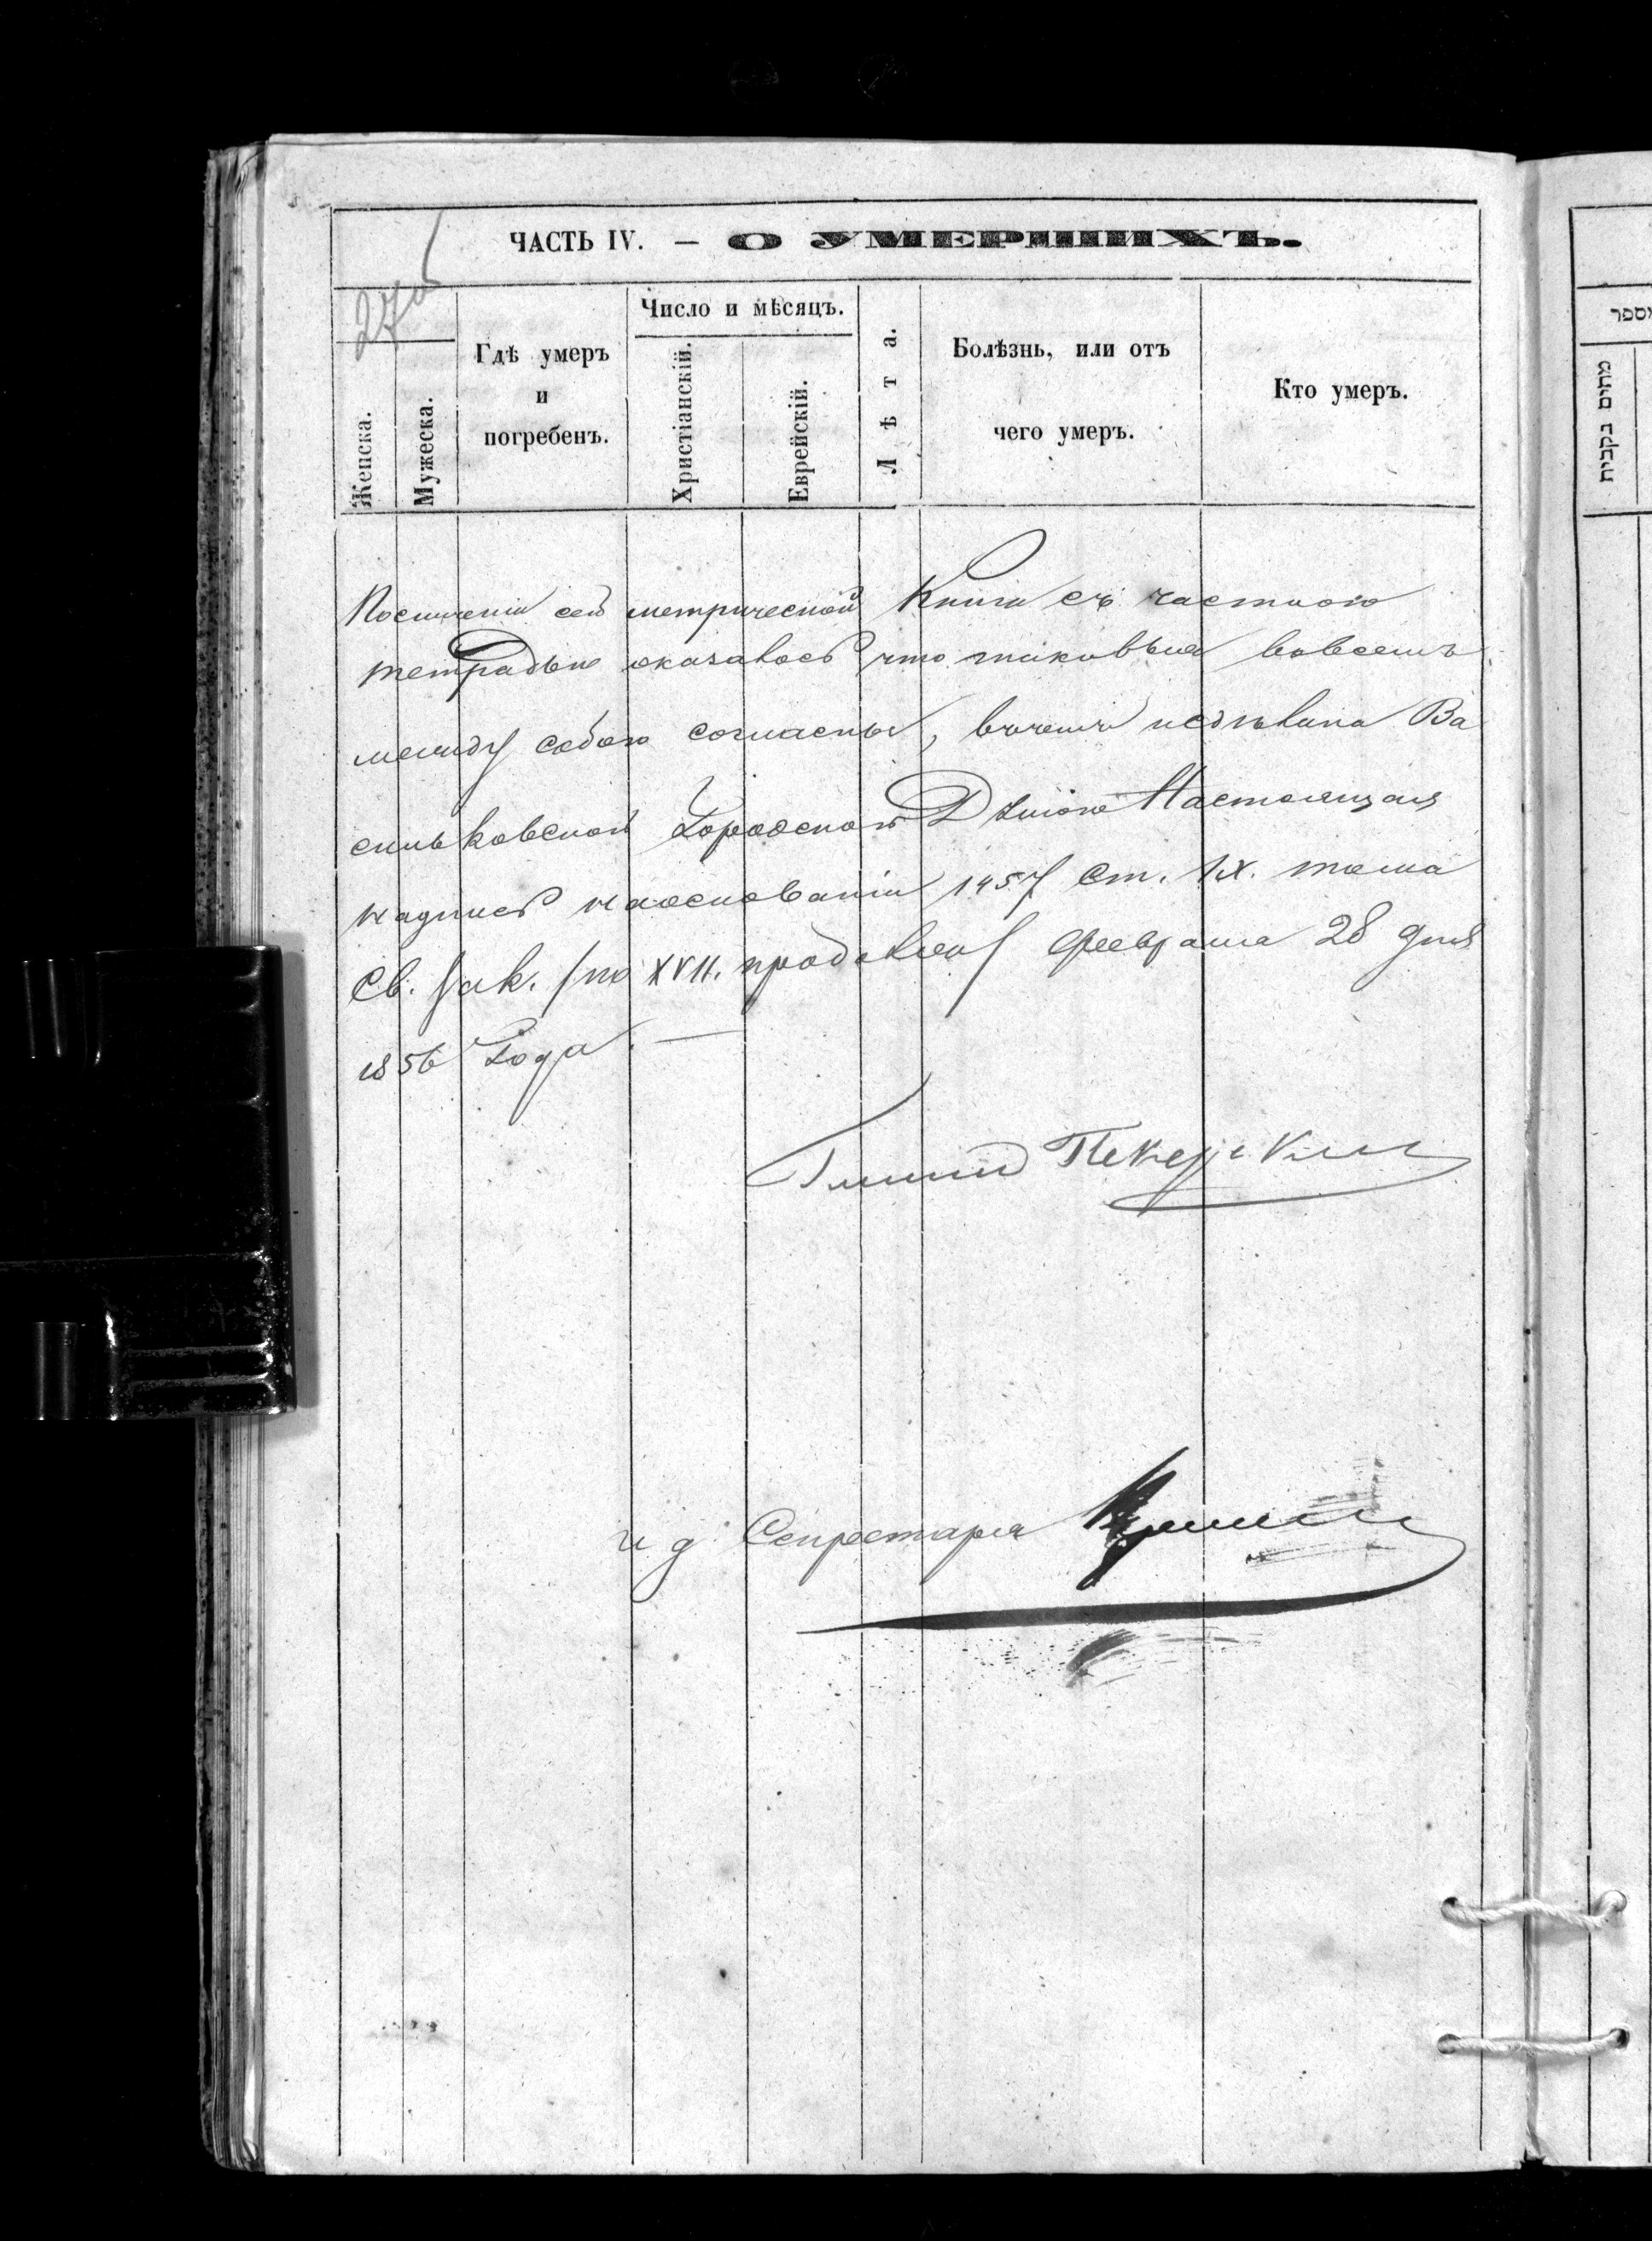 ЧАСТЬ IV. — О УМЕРШИХЪ.
Женска.
Мужеска.
Гдѣ умеръ
и
погребенъ.
Число и мѣсяцъ.
Христіанскій.
Еврейскій.
Лѣта.
Болѣзнь, или отъ
чего умеръ.
Кто умеръ.
По сличеніи сей метрической Книги съ частною
тетрадью оказалось что таковыя вовсемъ
между собою согласны, вчемъ исдѣлана Ва
сильковской Городской Думою Настоящая
надпись наоснованіи 1457 Ст. IX. тома
Св. Зак. /по XVII. продолже/ Февраля 28 дня
1856 Года. —
и д Секретаря
מספר